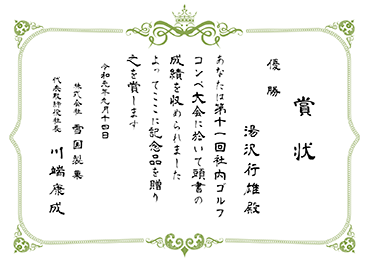 賞状
優勝
湯沢行雄殿
あなたは第十一回社内ゴルフ
コンペ大会に於いて頭書の
成績を収められました
よってここに記念品を贈り
之を賞します
令和元年九月十四日
株式会社 雪国製菓
代表取締役社長 川端康成